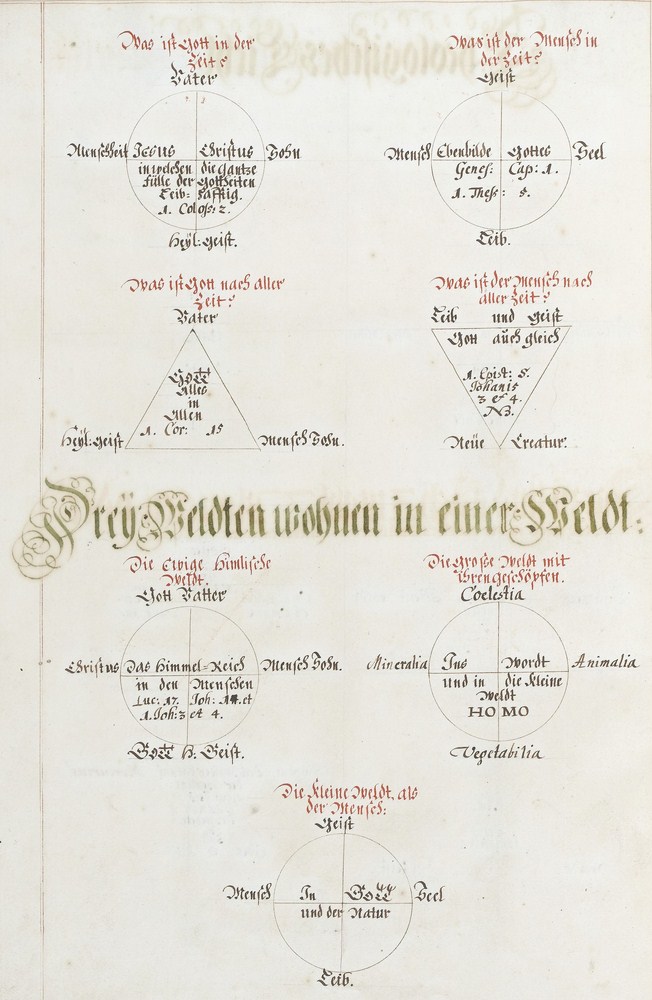 Was ist Gott in der
Zeit?
Vater
Menschheit Jesus Christus Sohn
in welchen die Gantze
Fülle der Gottheiten
Leib=hafftig.
1. Coloss: 2.
Heÿl: Geist.
Was ist der Mensch in
der Zeit?
Geist
Mensch Ebenbilde Gottes Seel
Genes: Cap: 1.
1. Thess: 5.
Leib.
Was ist Gott nach aller
Zeit?
Vater
GOTT
Alles
in
Allen
1. Cor: 15
Heÿl: Geist Mensch Sohn.
Was ist der Mensch nach
aller Zeit?
Leib und Geist
Gott auch gleich
1. Epist: S.
Johanis
3 et 4.
NB.
Neüe Creatur.
Dreÿ: Weldten wohnen in einer: Weldt:
Die Ewige Himlische
Weldt.
Gott Vatter
Christus Das Himmel=Reich Mensch Sohn.
in den Menschen
Luc: 17. Joh: 14. et
1. Joh: 3 et 4.
GOTT H: Geist.
Die Große Weldt mit
ihren Geschöpfen.
Coelestia
Mineralia Ins Wordt Animalia
und in die Kleine
Weldt
HOMO
Vegetabilia
Die Kleine Weldt, als
der Mensch:
Geist
Mensch In GOTT Seel
und der Natur
Leib.